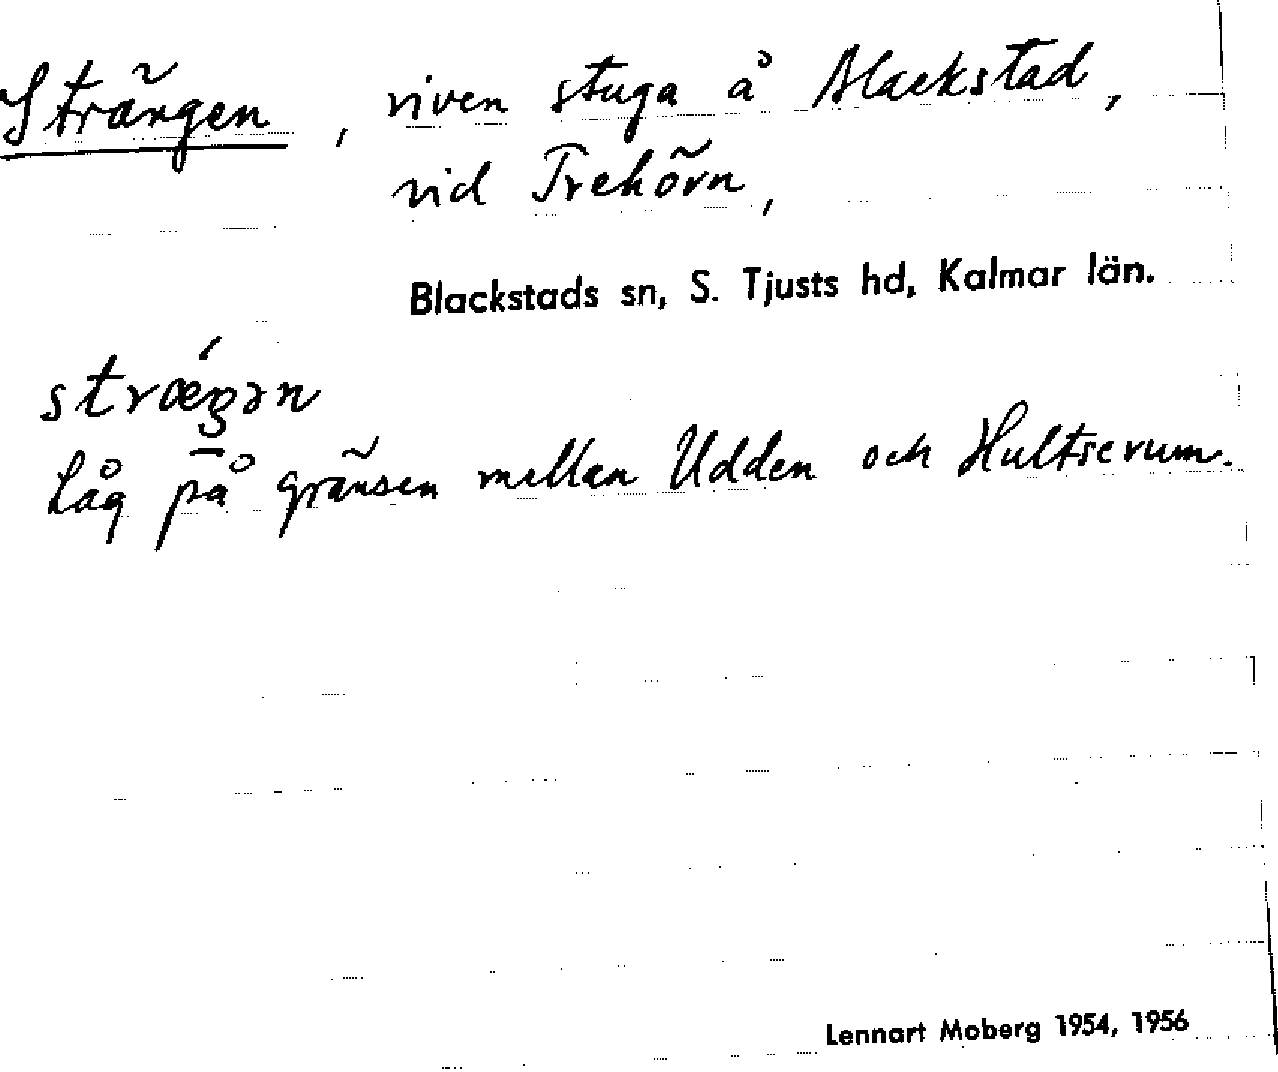 Strängen, riven stuga å Blackstad,
vid Trehörn,
Blackstads sn, S. Tjusts hd, Kalmar län.
Låg på gränsen mellan Udden och Hultserum.
Lennart Moberg 1954, 1956